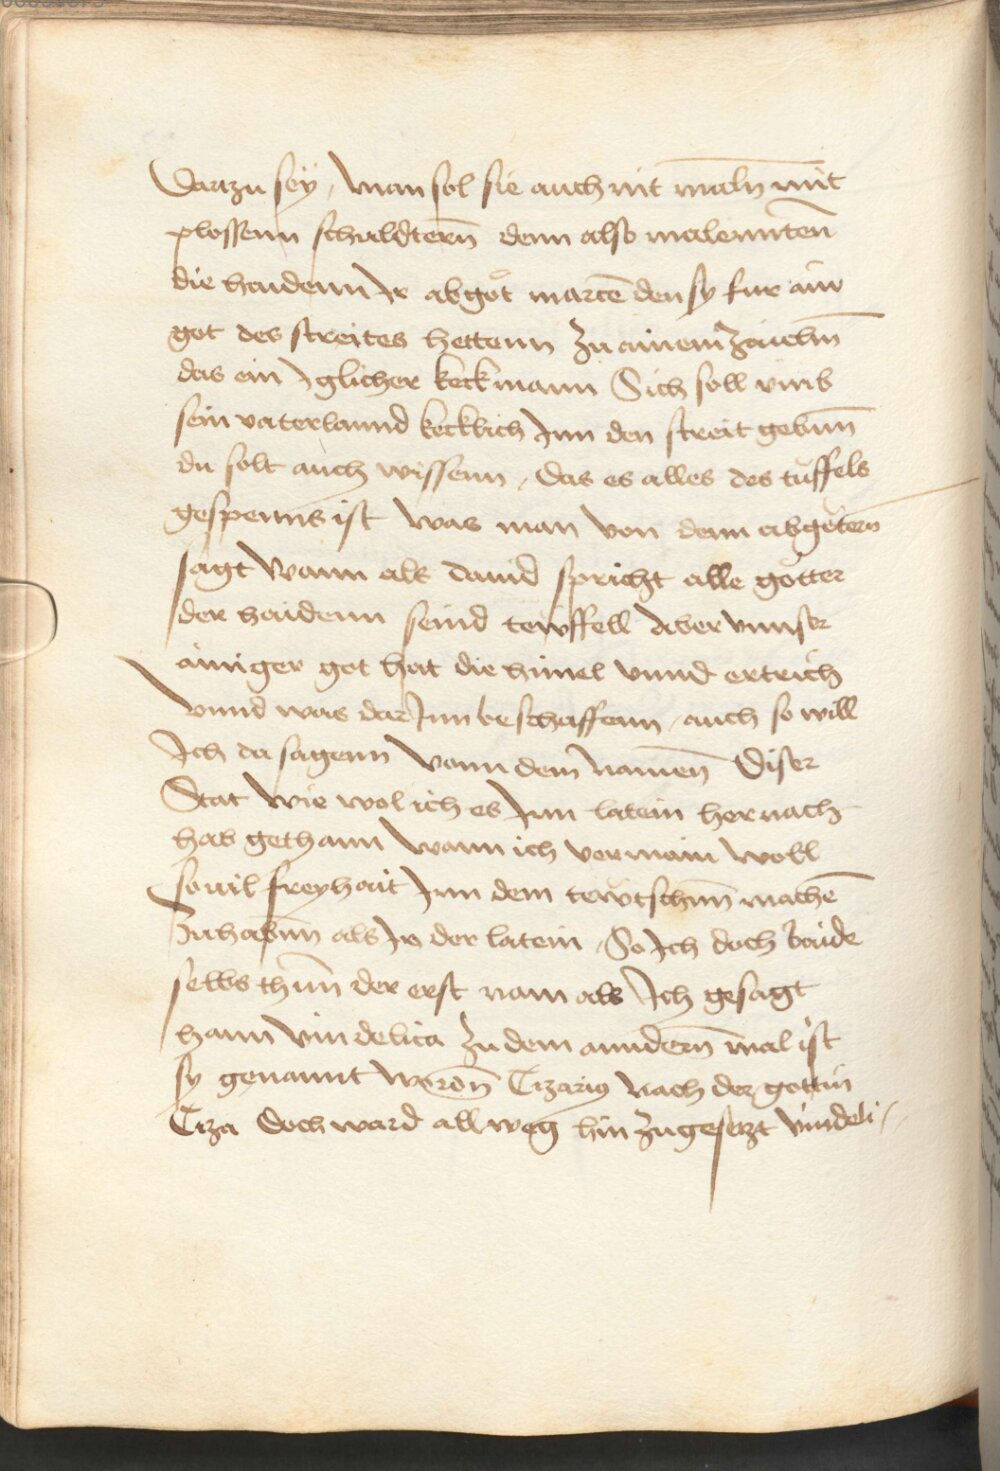 Dartzu seÿ, Man sol sie auch nit maln mit
plossenn schuldternn denn also malennten
die haidenn Jr abgöt martē den sy fur ain
got des streites hettenn zu ainem zaichn̄
das ein Jglicher keck mann Sich soll vmb
sein vaterlannd kecklich Jnn den streit gebnn̄
du solt auch wissenn, das es alles des tüffels
gespenns ist was man von denn abgötern
sagt wann als dauid spricht alle götter
der haidenn seind tewffell Aber vnnser
ainiger got hat die himel vnnd ertrich
vnnd was dar Jnn beschaffenn, auch so will
Ich da sagenn vonn dem namen̄ Diser
Stat wie wol ich es Jnn latein hernach
hab gethann wann ich vermain woll
souil freyhait Jnn dem tewtschnn̄ machē
zuhabnn̄ als Jn der latein, So Ich doch baide
selbs thun̄ der erst nam als Ich gesagt
hann vindelica zu dem anndern̄ mal ist
sy genannt wordn̄ Cizaris nach der gottin
Ciza Doch ward allweg hin zugesetzt vindeli-